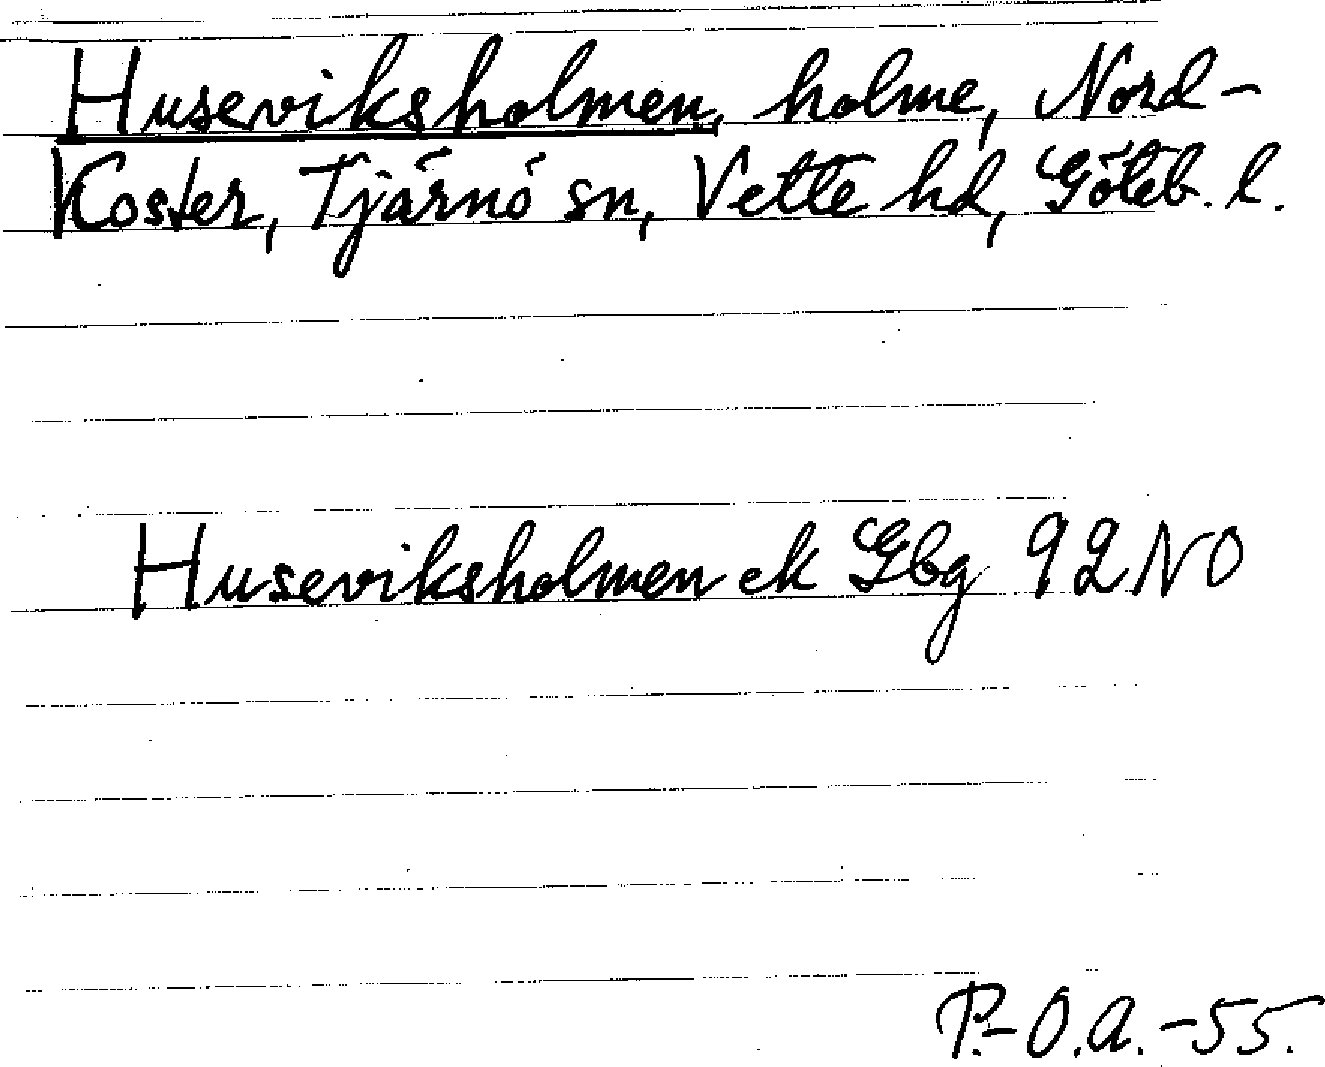 Huseviksholmen, holme, Nord-
Koster, Tjärnö sn, Vette hd, Göteb. l.
Huseviksholmen ek Gbg 92 NO
P.-O.A.-55.